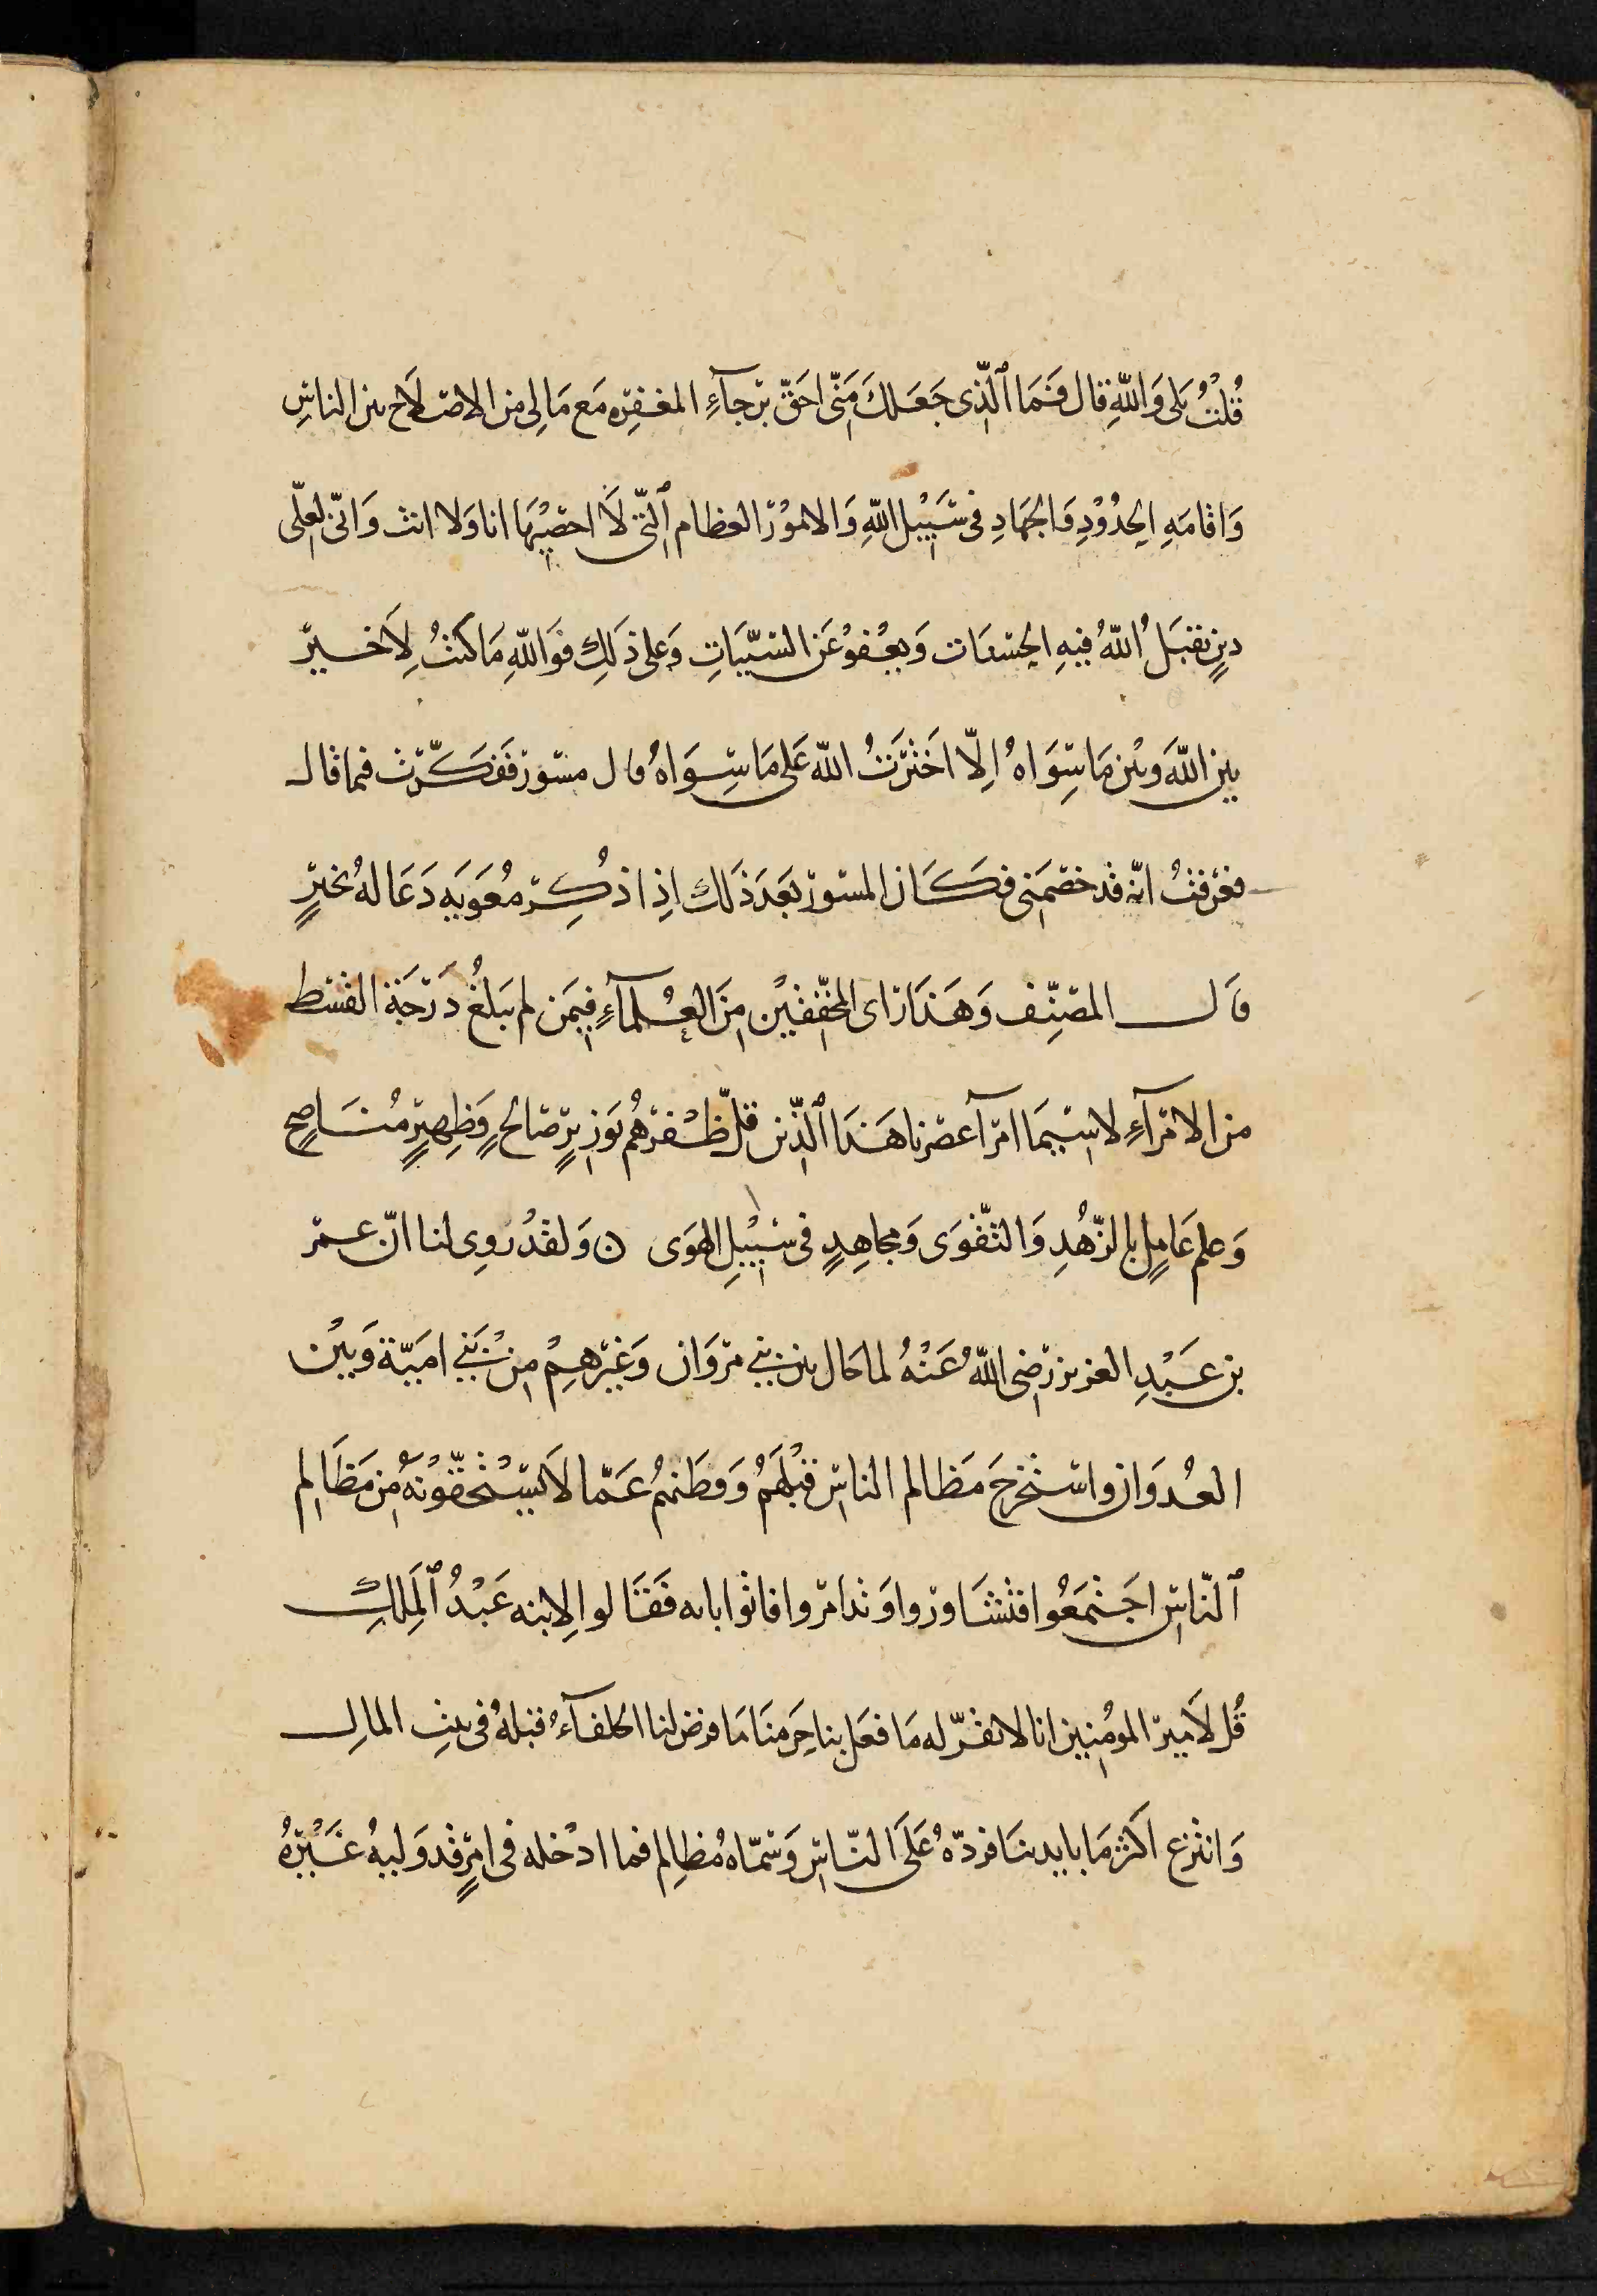 قُلتُ بَلى وَاللهِ قال فَمَا الّذِى جَعَلكَ مِنّى احَقّ برَجآءِ المغفِره مَع مَا لِى من الاصلَاح بين الناسِ
وَاقامَهِ الحدُوْدِ وَالجهَادِ فى سَبِيْل اللهِ وَالامُوْر العظام التّى لَا احصِيْهَا انا وَلا انت وَانّى لعَلَى
دينٍ يقبَلُ اللهُ فيهِ الحسنَات وَيعْفوُ عَن السّيّيَاتِ وَعلى ذَلِك فوَاللهِ مَا كنتُ لِاَخيرّ
بين اللهَ وبيْن مَا سِوَاهُ اِلّا اخَترَتُ اللهَ عَلى مَا سِوَاهُ قال مسور ففَكّرت فيما قال
فعَرفتُ انّه قد خصَمَنى فكَان المسور بَعَد ذَلك اِذا ذُكِر مُعَويَه دَعَا لهُ بخيرٍ
قَال المصَنِّف وَهَذا راى المخَفّفيْن مِنَ العُلمآءِ فِيمَن لم يَبلُغْ دَرَجَة القسط
من الامَرآءِ لاسِيَمَا امرآ عصْرنا هَذا الّذين قلّ ظفرهُم بوَزيرٍ صَالحٍ وَظِهيرٍ مُنَاصِحٍ
وَعلم عَامِلٍ بالزّهُدِ وَالتّقوَى وَمجاهِدٍ فى سَبِيْلِ الهوَى ں وَلقدْ روِى لنا انّ عمَر
بن عَبْدِ العزيز رَضى اللهُ عَنْهُ لما حَال بين بنِي مرْوَان وَغيرْهِمْ مِنْ بَنِي اميَّة وَبيْن
العُدوَان وَاسْتخرجَ مَظالم الناس قبْلهَمُ وَفطَنهُم عَمّا لَا يَسْتْحقّوُنهُ مِن مَظَالِم
النّاسِ اجَتمَعُوا فتشَاوَرُوا وَتدَامرُوا فاتوا بابه فقَالوا لِابنه عَبْدُ الَملِكِ
قُل لاَمِير المومُنِين انا لا نقرّ له مَا فعَل بنا حَرمنَا مَا فرض لنا الخلفآءُ قبلهُ فى بيتِ المالِ
وَانتزع اكثَر مَا بايدينَا فردّهُ عَلَى النّاسِ وَسَمّاهُ مُظالِم فما ادْخله فى امْرٍ قد وَليهُ غيْرهُ